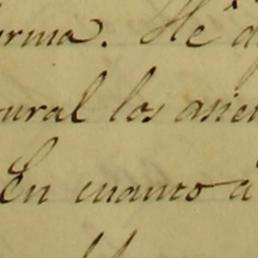 orma. He d
ural los asien
En cuanto á